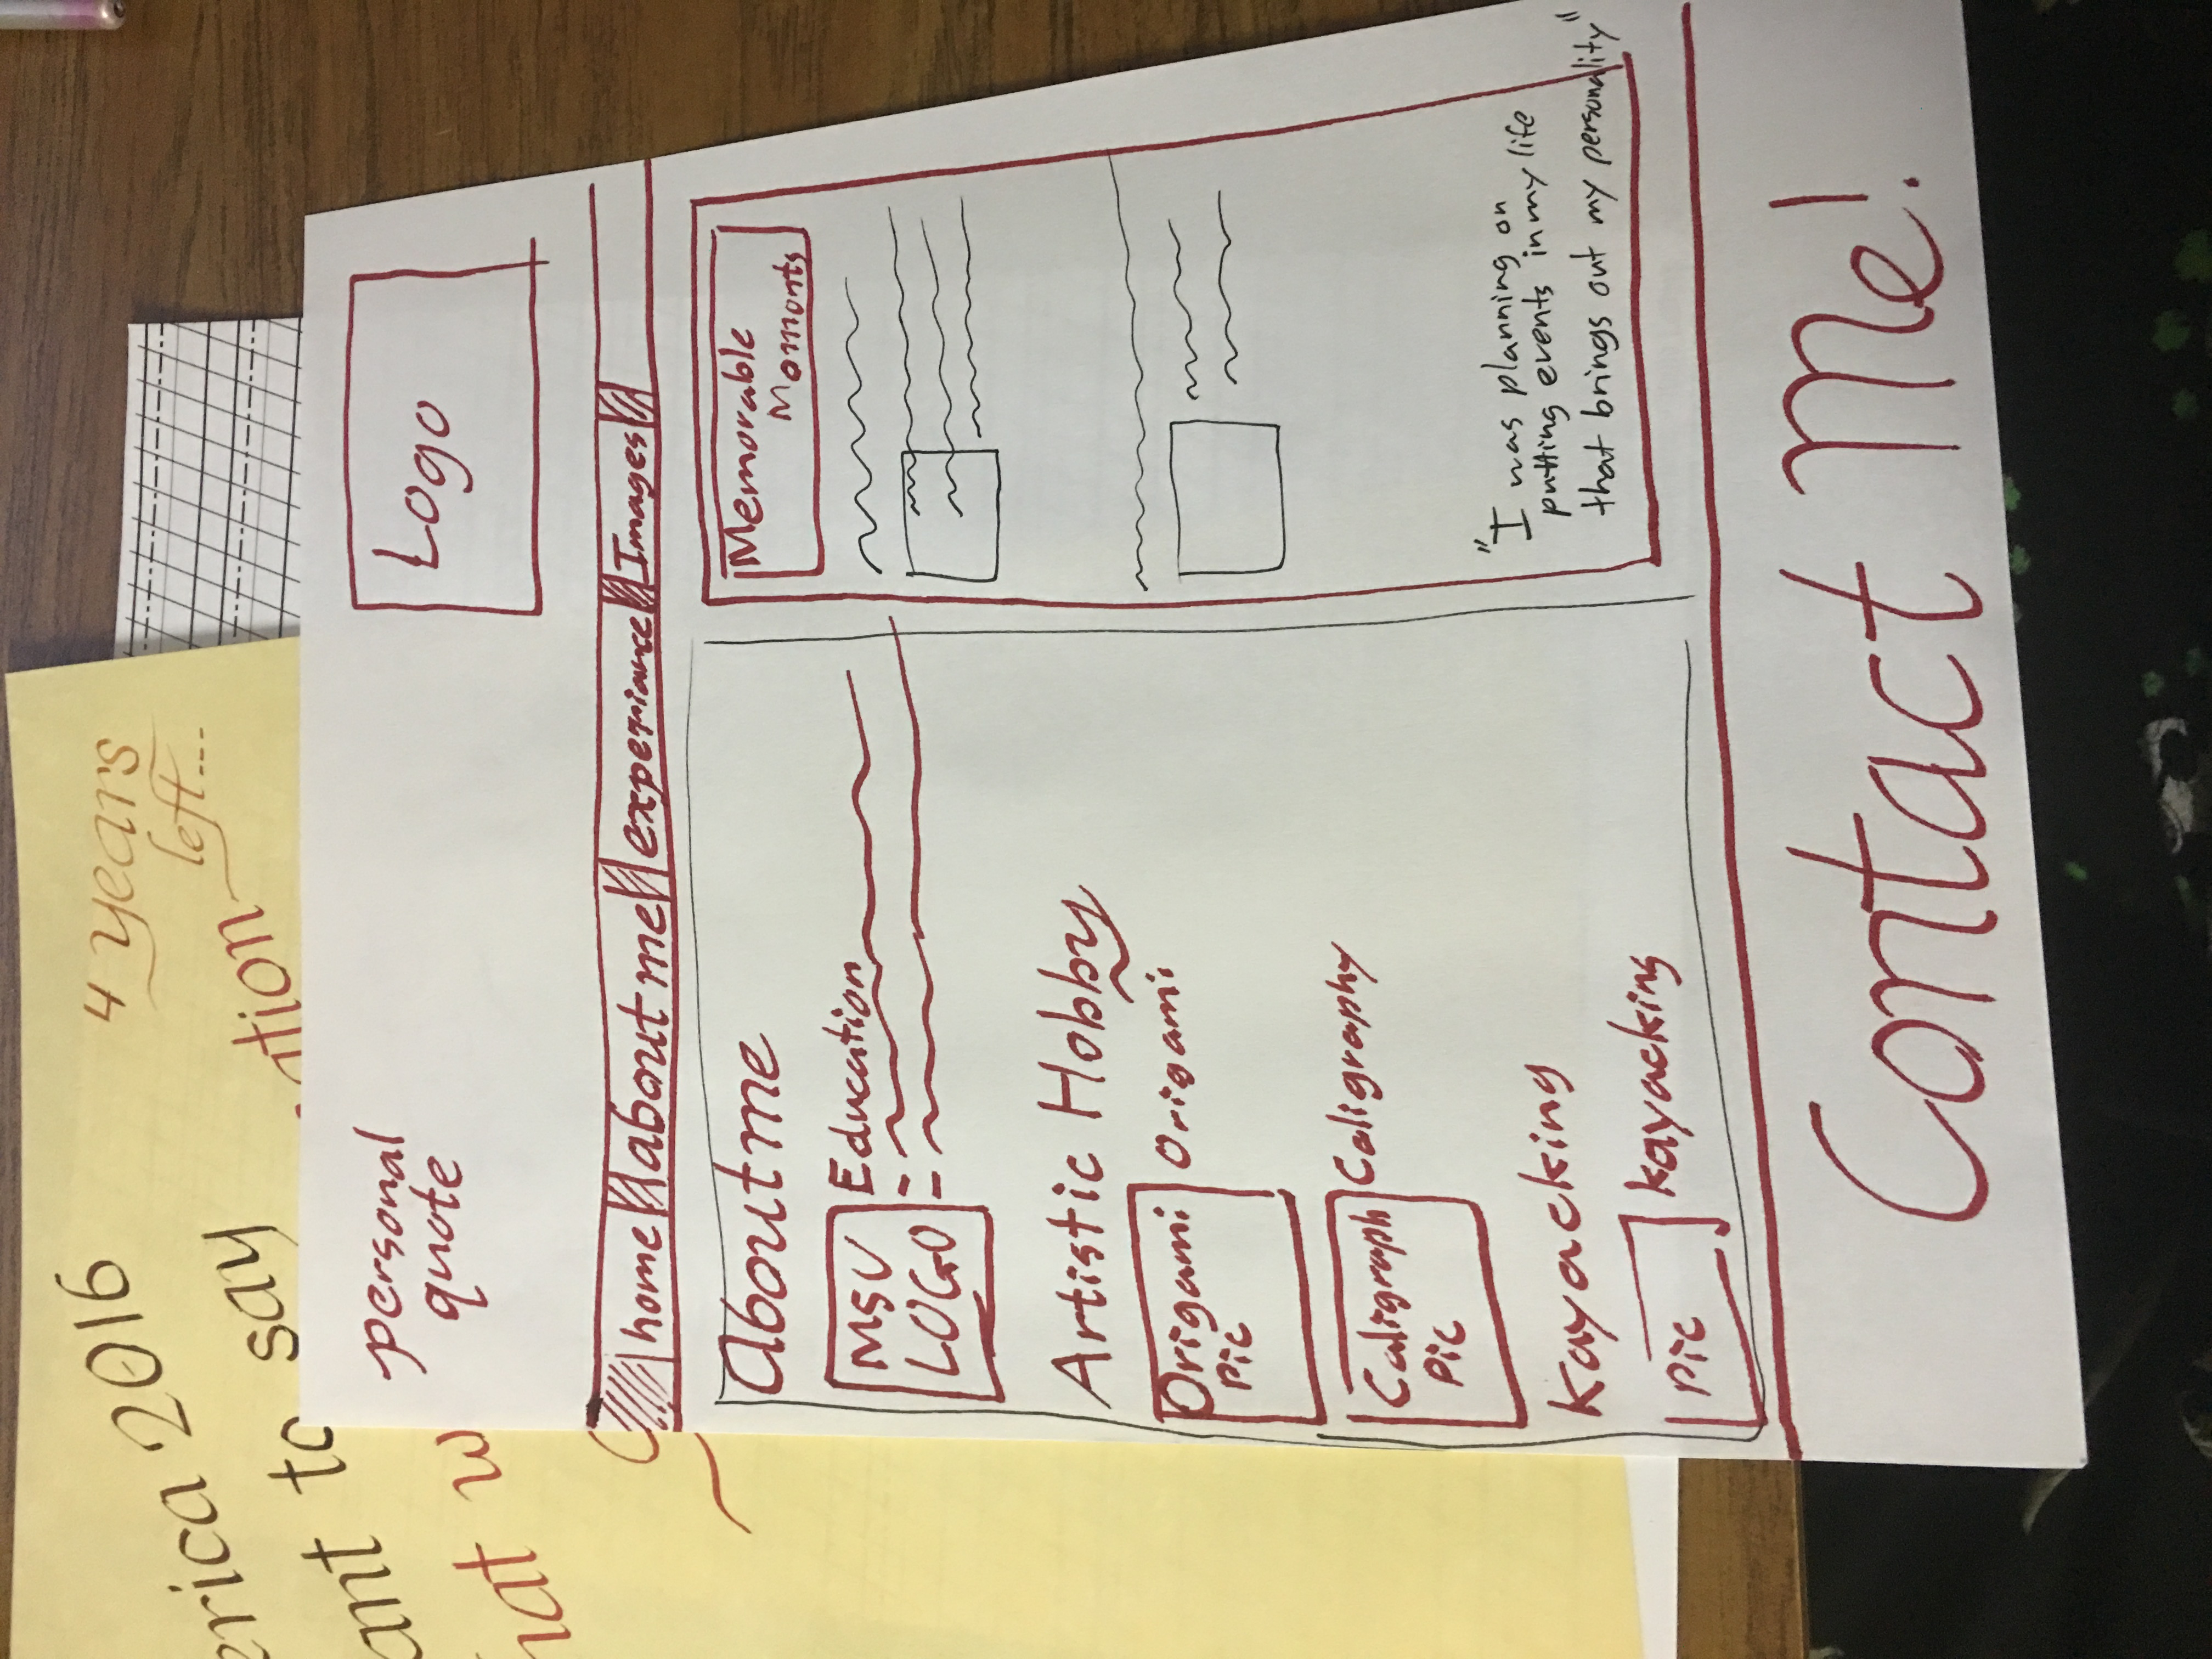 erica 2016
4 years
left...
ant to say
ation
hat w
personal
quote
Logo
home about me experiance Images
About me
MSU
LOGO
Education
Artistic Hobby
Origami
Pic
Origami
Caligraph
Pic
Caligraphy
Kayacking
Pic
Kayacking
Memorable
Moments
"I was planning on
putting events in my life
that brings out my personality"
Contact Me!